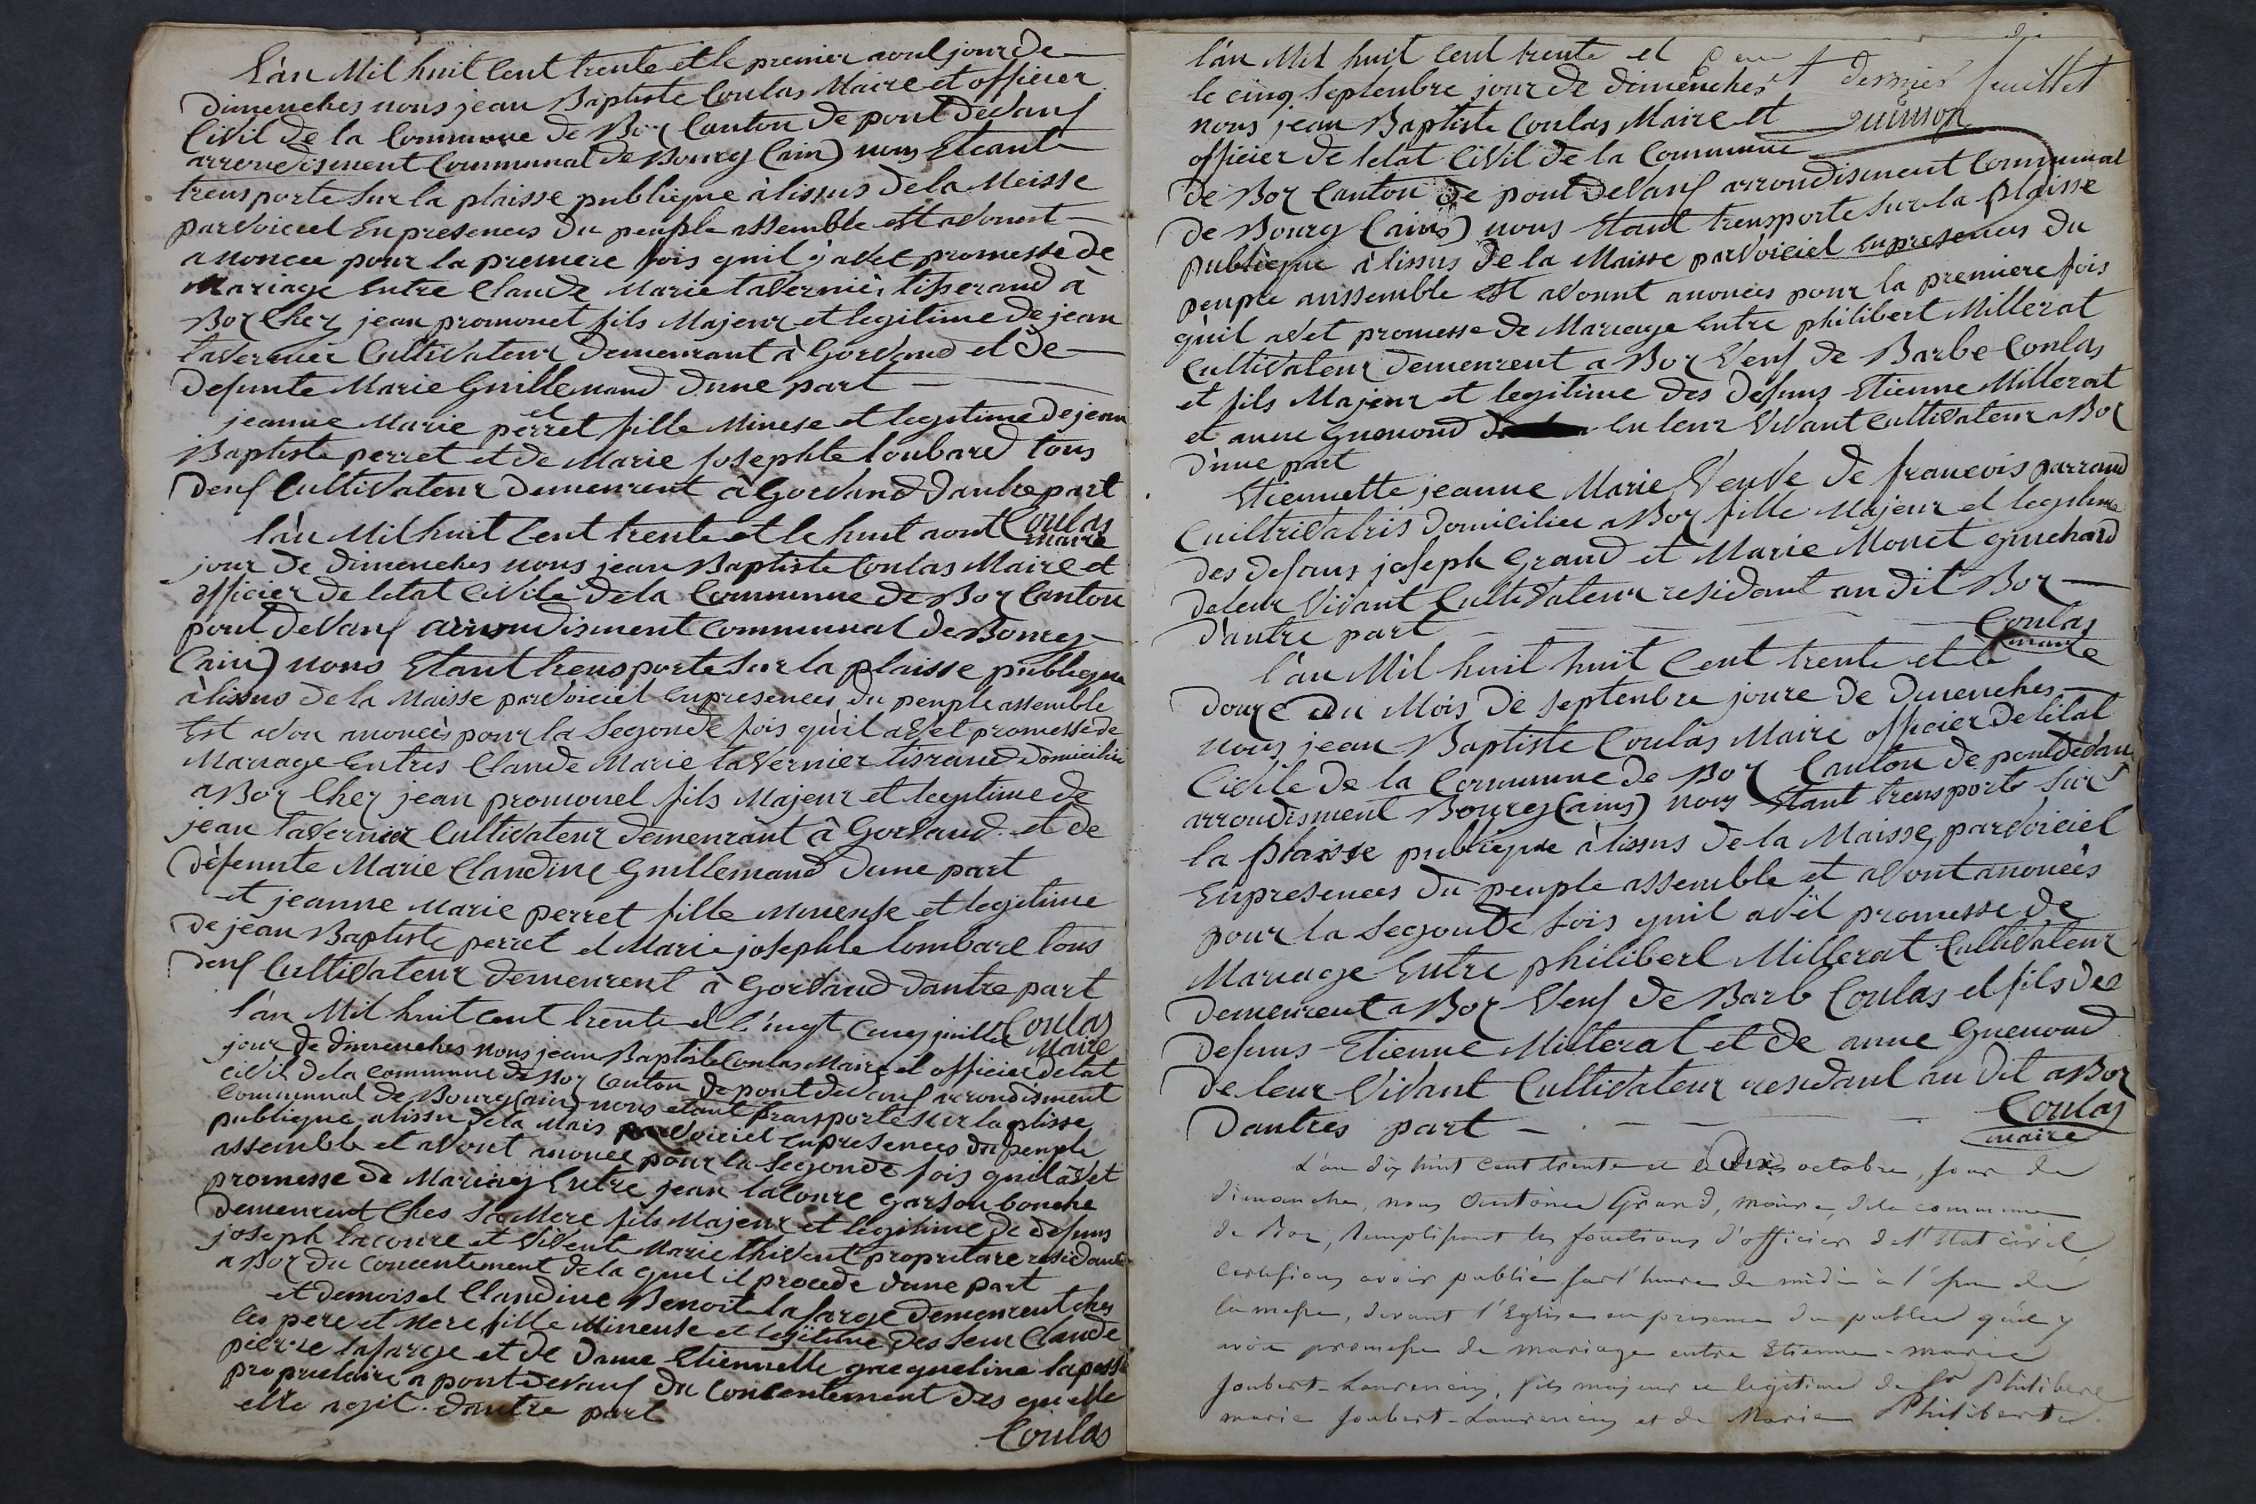 L'an Mil huit Cent trente et le premier aoul jour de
dimenches nous jean Baptiste Coulas Maire et officier
Civil de la Commune de Boz Canton de pont devauf
arrondisment Communal de Bourg (ain) nous Etcant
trensporte sur la plaisse publieque à lissus de la Meisse
parvoicel En presences du peuple assemble est avonst
anoncee pour la premere fois quil y avet promesse de
Mariage Entre Claude Marie taverniér tisserand à
Boz Chez jean promonet fils Majeur et legitime de jean
tavernier Cultivateur demeurant à Gorvand et de
defunte Marie Guillemand dune part
et
jeanne Marie perret fille Minese et legitime de jean
Baptiste perret et de Marie Josephte loubard tous
deuf Cultivateur demeurent à Gorvand dautre part
Coulas
maire
l'an Mil huit Cent trente et le huit aout
jour de dimenches nous jean Baptiste Coulas Maire et
officier de letat Civile de la Commune de Boz Canton
pont devauf arrondisment Communal de Bourg
(ain) nous Etant trensporte sur la plaisse publieque
à lissus de la Maisse parvoiciel En presences du peuple assemble
Est avon anoncés pour la Segonde fois qu'il avet promesse de
Mariage Entres Claude Marie tavernier tisrand domicilie
a Boz Chez jean promonel fils Majeur et legitime de
jean tavernier Cultivateur demeurant à Gorvaud et de
défeunte Marie Claudine Guillemand dune part
et jeanne Marie perret fille Mineuse et legitime
de jean Baptiste perret et Marie josephte lombare tous
deuf Cultivateur demeurent à Gorvand dautre part
Coulas
Maire
l'an Mil huit cent trente et le vingt Cinq juillet
jour de dimenches nous jean Baptiste Coulas Maire et officier detat
civil de la Commune de Boz Canton de pont devauf arrondisment
Communal de Bourg (ain) nous etant transporte sur la plisse
publieque alissu de la Mais parvoiciel en presences du peuple
assemble et avont anonce pour la Segonde fois quil avet
promesse de Mariag Entre jean lacoure garson bouche
demeurent Ches Sa Mere fils Majeur et legitime de defuns
joseph lacoure et vivente Marie thivent propritare residante
a Boz du concentement de la quel il procede dune part
et demoisel Claudine Benoite lafarge demeurent chez
les pere et mere fille Mineuse et legitime des seur Claude
pierre lafarge et de dame Etiennette gacqueline
proprietaire a pont devauf du concentement des quelle
elle agit dautre part
Coulas
l'an Mil huit Cent trente et
le cinq Septenbre jour de dimenches
nous jean Baptiste Coulas Maire et
dernier feuillet
officier de letat Civil de la Commune
de Boz Canton de pont devauf arrondisment Communal
de Bourg (ains) nous Etant trensporte sur la plaisse
publieque à lissus de la Maisse parvoiciel en presences du
peuple anssemble est avonnt anoncés pour la premiere fois
qu'il avet promesse de Mariage Entre philibert Millerat
Cultivateur demeurent a Boz Veuf de Barbe Coulas
et fils Majeur et legitime des defuns Etienne Millerat
et anne Guenoud En leur Vivant Cultivateur a Boz
d'une part
Etiennette jeanne Marie Veuve de francois parrand
Cuiltrivatris domicilie a Boz fille Majeur et legitime
des defuns joseph Grand et Marie Monet guichard
de leur Vivant Cultivateur residant au dit Boz
d'autre part
Coulas
maire
l'an Mil huil huit Cent trente et le
douze du Mois de septenbre joure de dimenches
nous jean Baptiste Coulas Maire officier de letat
Civile de la Commune de Boz Canton de pont devauf
arrondisment Bourg (ains) nous Etant trensporte sur
la plaisse publieque à lissus de la Maisse parvoiciel
En presences du peuple assemble et avont anoncés
pour la segonde fois quil avét promesse de
Mariage Entre philibert Millerat Cultivateur
demeurent a Boz Veuf de Barb Coulas et fils de
defuns Etienne Millerat et de anne Guenoud
de leur Vivant Cultivateur residant au dit a Boz
dautres part
Coulas
maire
L'an dix huit cent trente et le dix octobre, jour de
dimanche, nous Antoine Grand, maire, de la commune
de Boz, Remplissant les fonctions d'officier de l'état civil
certifions avoir publié sur l'heure de midi à l'issue de
la messe, devant l'Eglise en presence du public qu'il y
avoit promesse de mariage entre Etienne-marie
Joubert-Laurencin, fils majeur et legitime de Sr Philibert
marie Joubert-Laurencin et de Marie Philiberte